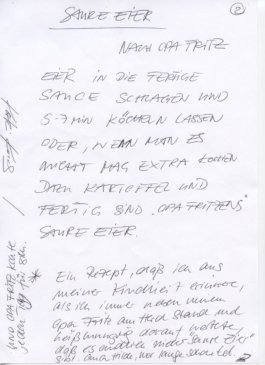 SAURE EIER
2
NACH OPA FRITZ
EIER IN DIE FERTIGE
SAUCE SCHLAGEN UND
5-7 MIN KÖCHELN LASSEN
ODER, WENN MAN ES
NICHT MAG EXTRA KOCHEN
DAZU KARTOFFEL UND
FERTIG SIND "OPA FRITZENS"
SAURE EIER.
Ein Rezept, daß ich aus
meiner Kindheit erinnere,
als ich immer neben meinem
Opa Fritz am Herd stand und
heißhungrig darauf wartete,
daß es endlich wieder "Saure Eier"
gibt.
UND OPA FRITZ KOCHTE
jeden Tag für